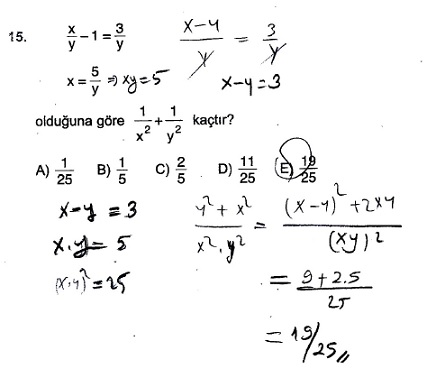 15. x/y - 1 = 3/y
x-y/y = 3/y
x = 5/y ⇒ xy = 5
x-y = 3
olduğuna göre 1/x² + 1/y² kaçtır?
A) 1/25 B) 1/5 C) 2/5 D) 11/25 E) 19/25
x-y = 3
x.y = 5
(x.y)² = 25
y² + x² / x² . y² = (x-y)² + 2xy / (xy)²
= 9 + 2.5 / 25
= 19/25